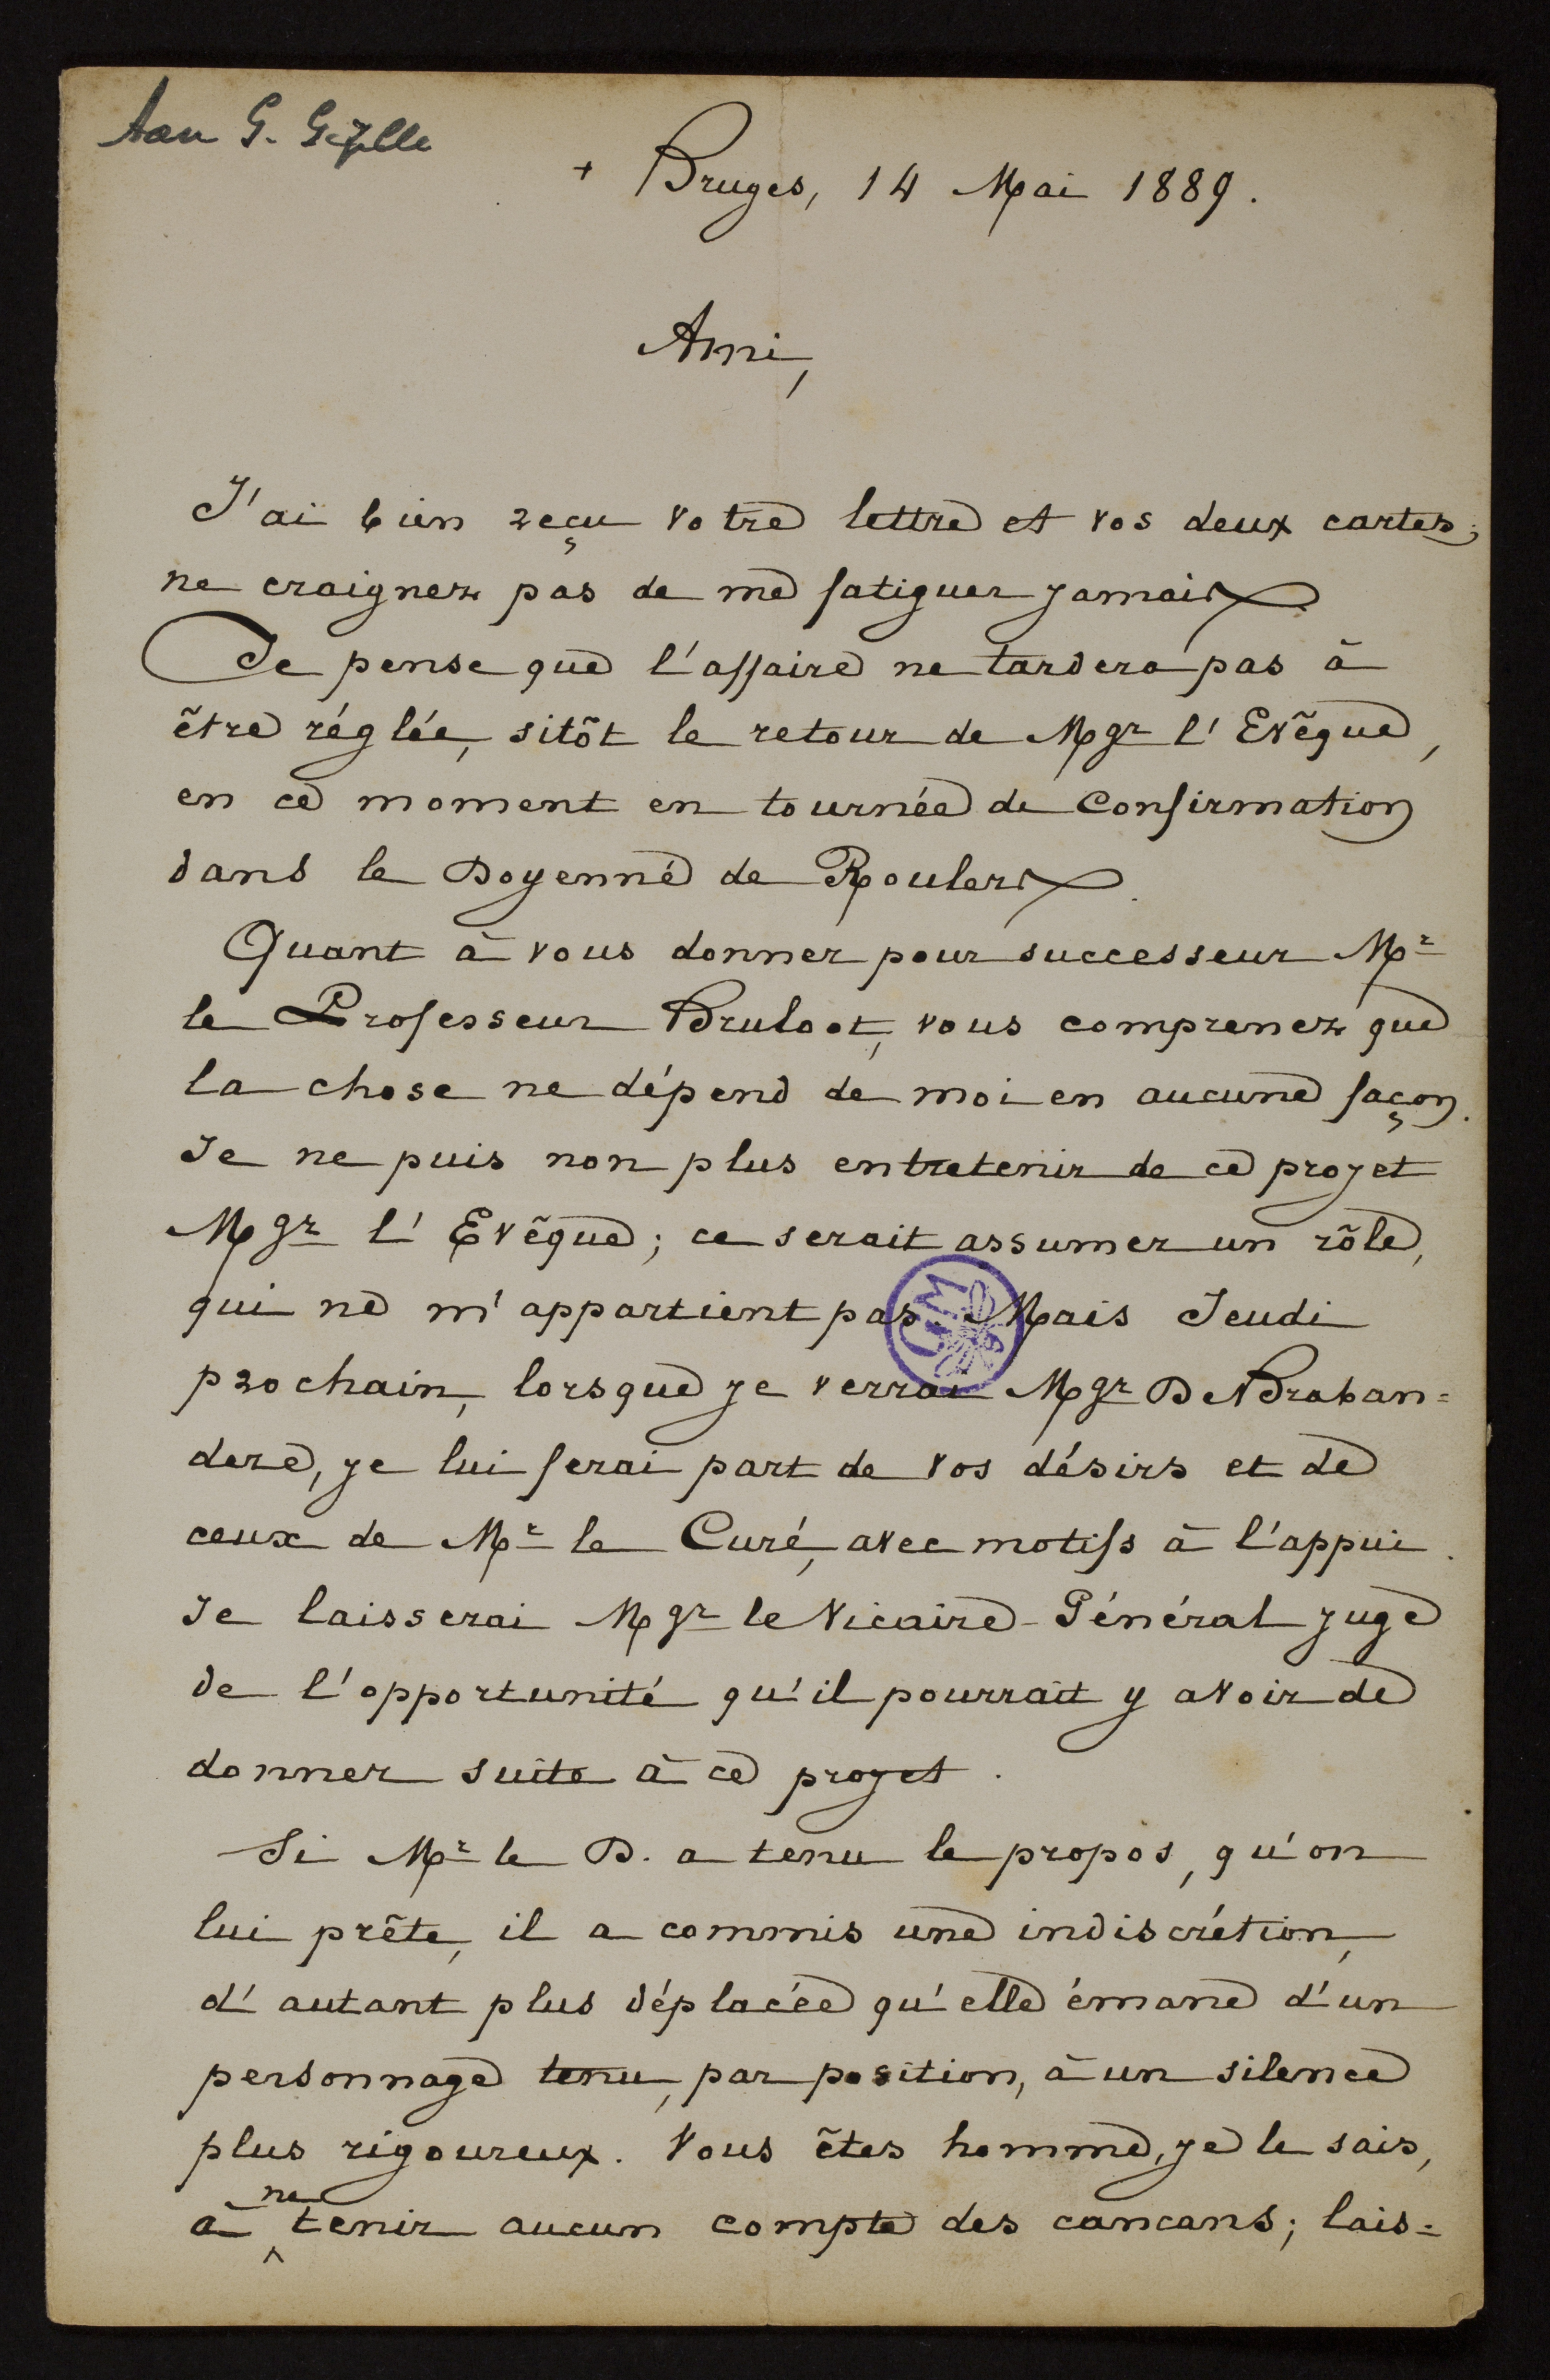 Aan G. Gezelle
+ Bruges, 14 Mai 1889.
Ami,
J'ai bien reçu votre lettre et vos deux cartes;
ne craignez pas de me fatiguer jamais.
Je pense que l'affaire ne tardera pas à
être réglée, sitôt le retour de Mgr l'Evêque,
en ce moment en tournée de Confirmation
dans le Doyenné de Roulers.
Quant à vous donner pour successeur Mr
le Professeur Bruloot, vous comprenez que
la chose ne dépend de moi en aucune façon.
Je ne puis non plus entretenir de ce projet
Mgr l'Evêque; ce serait assumer un rôle,
qui ne m'appartient pas. Mais Jeudi
prochain, lorsque je verrai Mgr De Braban=
dere, je lui ferai part de vos désirs et de
ceux de Mr le Curé, avec motifs à l'appui.
Je laisserai Mgr le Vicaire-Général juge
de l'opportunité qu'il pourrait y avoir de
donner suite à ce projet.
Si Mr le D. a tenu le propos, qu'on
lui prête, il a commis une indiscrétion,
d'autant plus déplacée qu'elle émane d'un
personnage tenu, par position, à un silence
plus rigoureux. Vous êtes homme, je le sais,
à ne tenir aucun compte des cancans; lais=